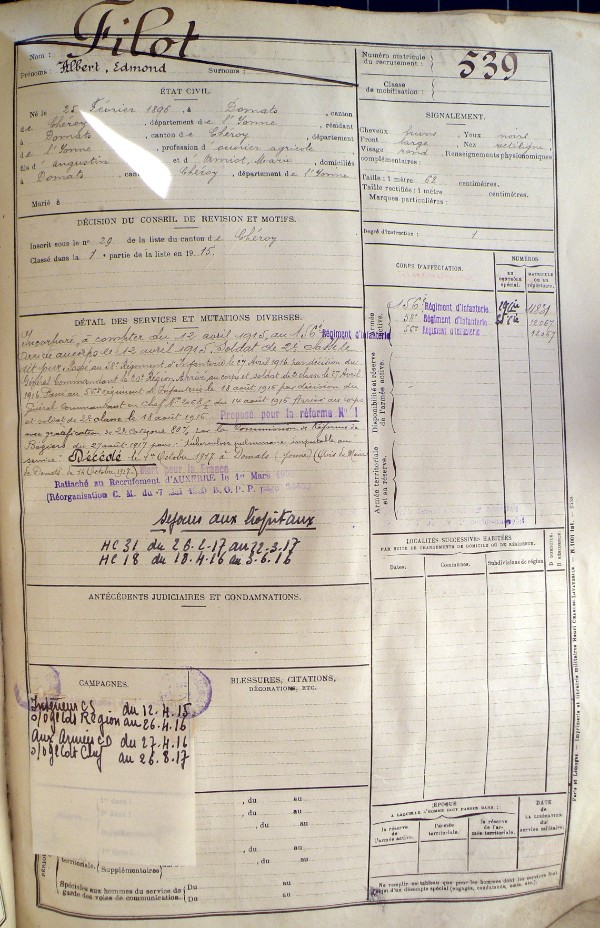 Nom : Filot
Prénoms : Albert, Edmond Surnoms :
Numéro matricule du recrutement : 539
Classe de mobilisation :
ÉTAT CIVIL.
Né le 25 Février 1896, à Domats, canton
de Chéroy, département de l'Yonne, résidant
à Domats, canton de Chéroy, département
de l'Yonne, profession d'ouvrier agricole
fils d'Augustin et d' Marie, domiciliés
à Domats, Chéroy, département de l'Yonne
Marié à
SIGNALEMENT.
Cheveux bruns, Yeux noirs
Front large, Nez rectiligne,
Visage rond, Renseignements physionomiques
complémentaires :
Taille : 1 mètre 62 centimètres.
Taille rectifiée : 1 mètre centimètres.
Marques particulières :
Degré d'instruction : 1
DÉCISION DU CONSEIL DE REVISION ET MOTIFS.
Inscrit sous le n° 29 de la liste du canton de Chéroy
Classé dans la 1e partie de la liste en 1915.
CORPS D'AFFECTATION.
NUMÉROS
AU CONTRÔLE spécial.
MATRICULE OU AU répertoire.
156e Régiment d'Infanterie 11831
38e Régiment d'Infanterie 12067
55e Régiment d'Infanterie 12067
Armée active.
Disponibilité et réserve de l'armée active.
Armée territoriale et
DÉTAIL DES SERVICES ET MUTATIONS DIVERSES.
Incorporé à compter du 12 avril 1915, au 156e Régiment d'Infanterie
Arrivé au corps le 12 avril 1915, Soldat de 2e classe
dit jour. Passé au 38e Régiment d'Infanterie le 27 Avril 1916 par décision du
Général Commandant la Région. Arrivé au corps et soldat de 2e classe le 27 Avril
1916. Passé au 55e régiment d'Infanterie le 18 août 1916 par décision du
Général Commandant en Chef du 14 août 1916 Arrivé au corps
et soldat de 2e classe le 18 août 1916. Proposé pour la réforme N° 1
avec gratification de 80% par la Commission de Réforme de
Béziers du 27 août 1917 pour : tuberculose pulmonaire imputable au
service. Décédé le 1er Octobre 1917 à Domats (Yonne) (Avis de Maire
de Domats, du Octobre 1917.) Mort pour la France
Rattaché au Recrutement d'AUXERRE le 1er Mars
(Réorganisation C. M. du 7 B. O. P. P. page
Séjours aux hôpitaux
HC 31 du 26-2-17 au 22-3-17
HC 18 du 18-4-16 au 3-6-16
LOCALITÉS SUCCESSIVES HABITÉES
PAR SUITE DE CHANGEMENTS DE DOMICILE OU DE RÉSIDENCE.
Dates. Communes. Subdivisions de région. D DOMICILE. R RÉSIDENCE.
ANTÉCÉDENTS JUDICIAIRES ET CONDAMNATIONS.
CAMPAGNES.
Intérieur CS du 12.4.15
Région au 26.4.16
Aux Armées CD du 27.4.16
au 26.8.17
BLESSURES, CITATIONS,
DÉCORATIONS, ETC.
, du au
, du au
, du au
, du au
, du au
territoriale. (Supplémentaires)
Spéciales aux hommes du service de garde des voies de communication. Du au
Du au
ÉPOQUE
A LAQUELLE L'HOMME DOIT PASSER DANS :
la réserve de l'armée active.
l'armée territoriale.
la réserve de l'armée territoriale.
DATE de LA LIBÉRATION du service militaire.
Paris et Limoges. — Imprimerie et librairie militaires Henri CHARLES-LAVAUZELLE